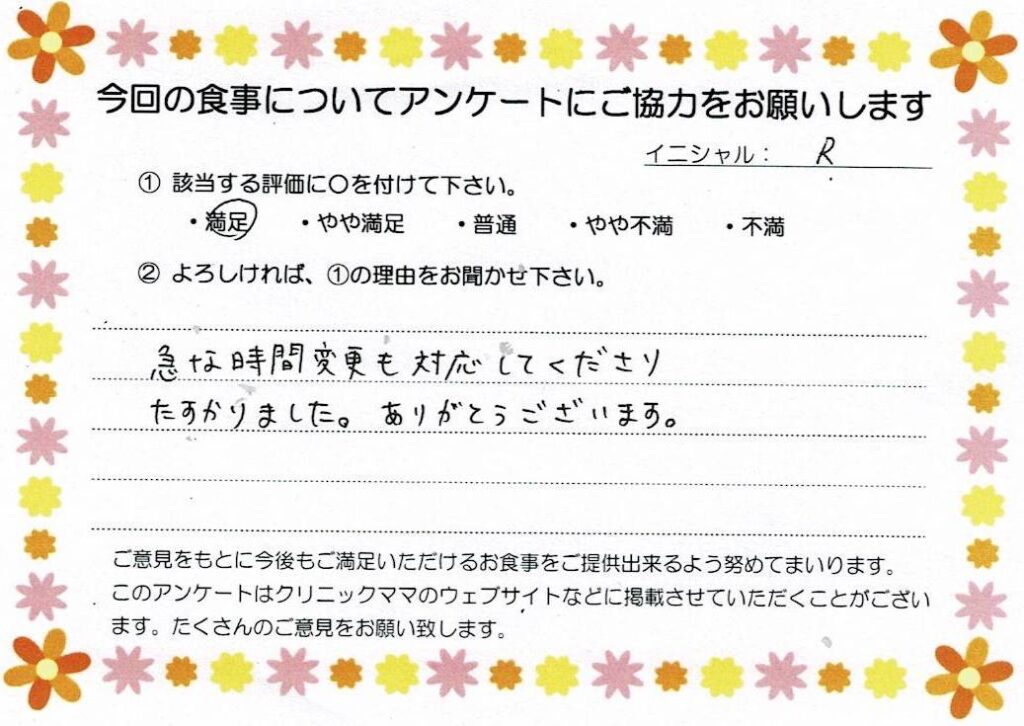 今回の食事についてアンケートにご協力をお願いします
イニシャル： R
① 該当する評価に〇を付けて下さい。
・満足 ・やや満足 ・普通 ・やや不満 ・不満
② よろしければ、①の理由をお聞かせ下さい。
急な時間変更も対応してくださり
たすかりました。ありがとうございます。
ご意見をもとに今後もご満足いただけるお食事をご提供出来るよう努めてまいります。
このアンケートはクリニックママのウェブサイトなどに掲載させていただくことがござい
ます。たくさんのご意見をお願い致します。